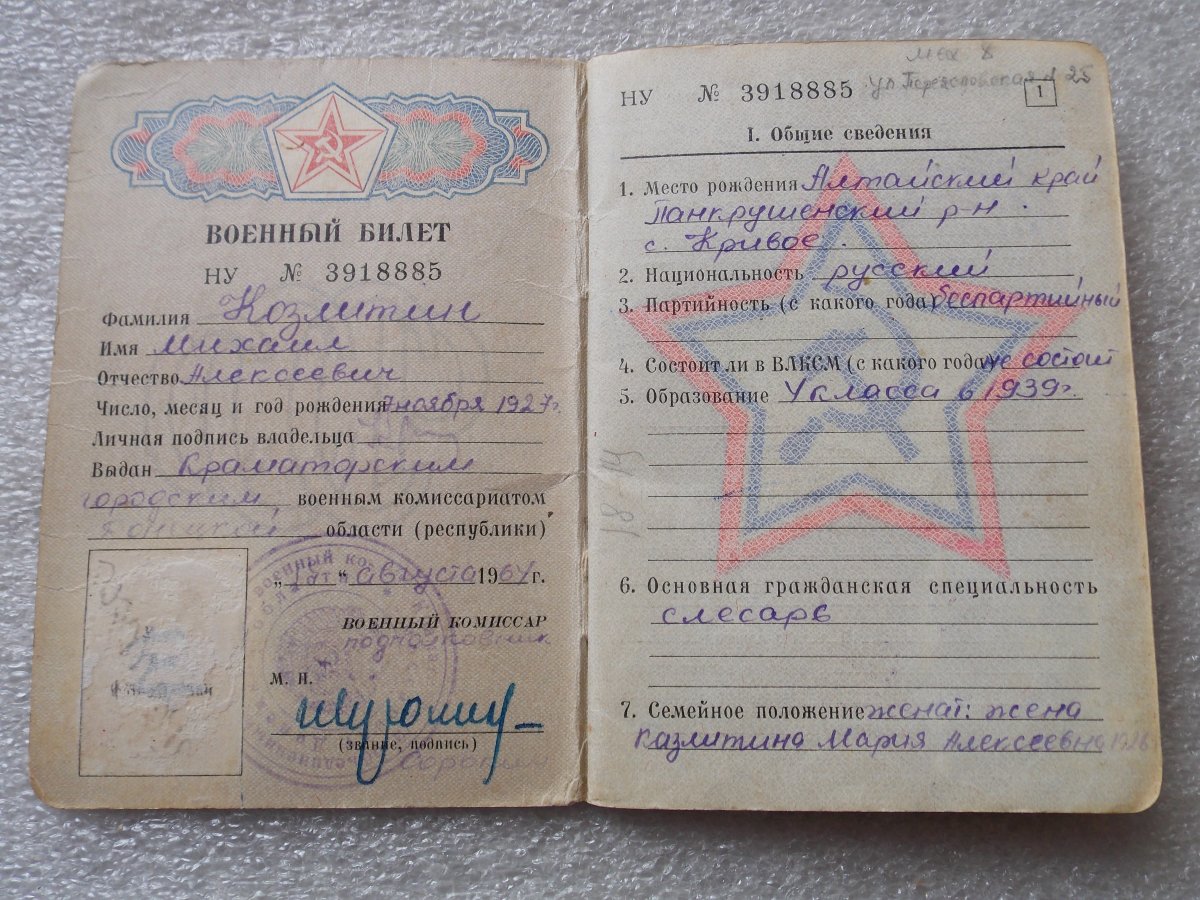 ВОЕННЫЙ БИЛЕТ
НУ № 3918885
Фамилия Козлитин
Имя Михаил
Отчество Алексеевич
Число, месяц и год рождения 7 ноября 1927 г.
Личная подпись владельца
Выдан Краматорским
городским военным комиссариатом
Донецкой области (республики)
" " августа 1964 г.
ВОЕННЫЙ КОМИССАР
подполковник
М. П.
(звание, подпись)
НУ № 3918885
ул Переясловская 25
1
I. Общие сведения
1. Место рождения Алтайский край
Панкрушенский р-н.
с. Кривое.
2. Национальность русский
3. Партийность (с какого года) беспартийный
4. Состоит ли в ВЛКСМ (с какого года) не состоит
5. Образование класса в 1939 г
6. Основная гражданская специальность
слесарь
7. Семейное положение женат: жена
Казлитина Мария Алексеевна 1926